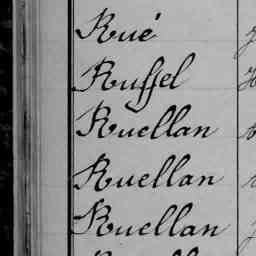 Rué
Ruffel
Ruellan
Ruellan
Ruellan